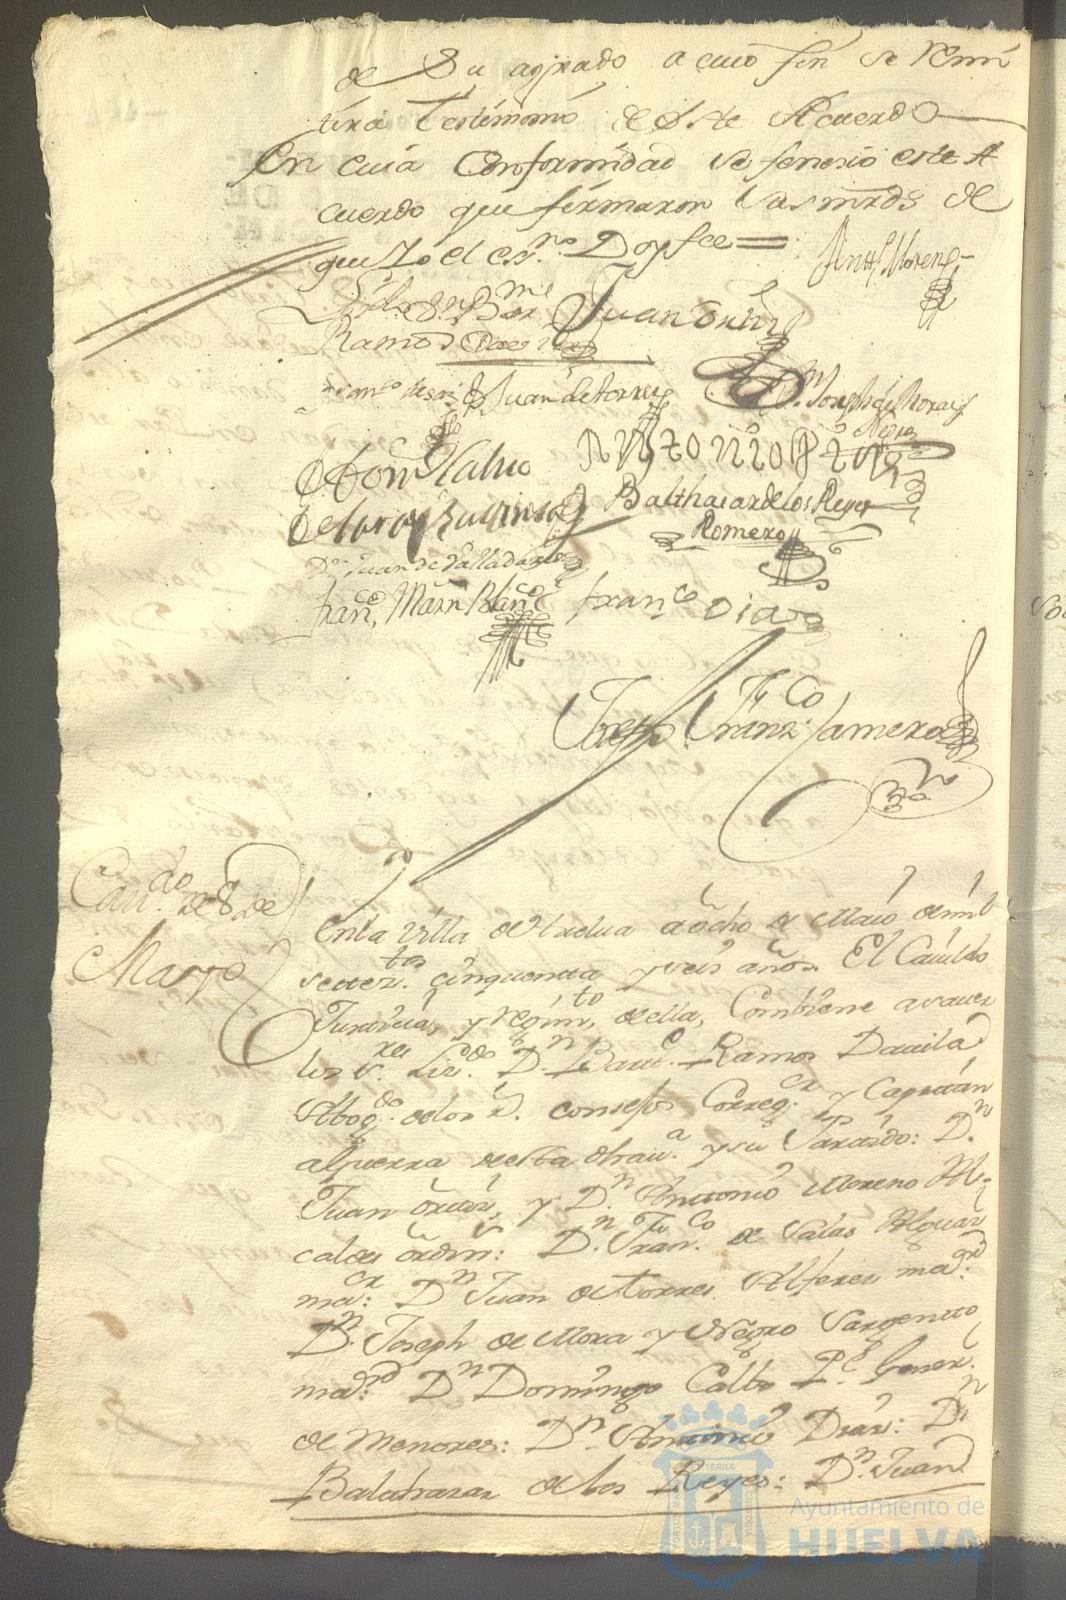 de Su agrado a cuio fin se remi
tirá Testimonio de este Acuerdo
En cuia Conformidad se feneció este A
cuerdo que firmaron Sus mrds de
que Yo el ess.no Doy fee =
Anttº Moreno
Ldo. Dn Barme
Ramos Davila
Juan Ortiz
Juan de torres
Dn Joseph de Mora y
Negro
Antonio
Balthasar de los Reyes
Romero
Dn Juan de Valladares
Franco, Marn Blanco
Franco Diaz
Joseph Franco Jamero
Cavdo de 8 de
Mayo
En la Villa de Huelva a ocho de Maio de mil
settez.tos cinquentta y seis años. El Cavildo
Justicia, y regim.to de ella, Combiene a saver
los s.res Liz.do D.n Bart.e Ramos Davila
Abog.do de los R.s consejos Correg.or y Capitan
a guerra de esta dha v.a y su Partido: D.n
Juan Ortiz, y D.n Anttonio Moreno Al-
caldes ordin.s: D.n Fran.co de Salas Alguacil
ma.or: D.n Juan de Torres Alferes ma.or:
D.n Joseph de Mora y Negro Sargentto
ma.or D.n Domingo Calbo P.e Gener.l
de Menores: D.n Anttonio Diaz: D.n
Balthazar de los Reyes: D.n Juan
Ayuntamiento de
HUELVA